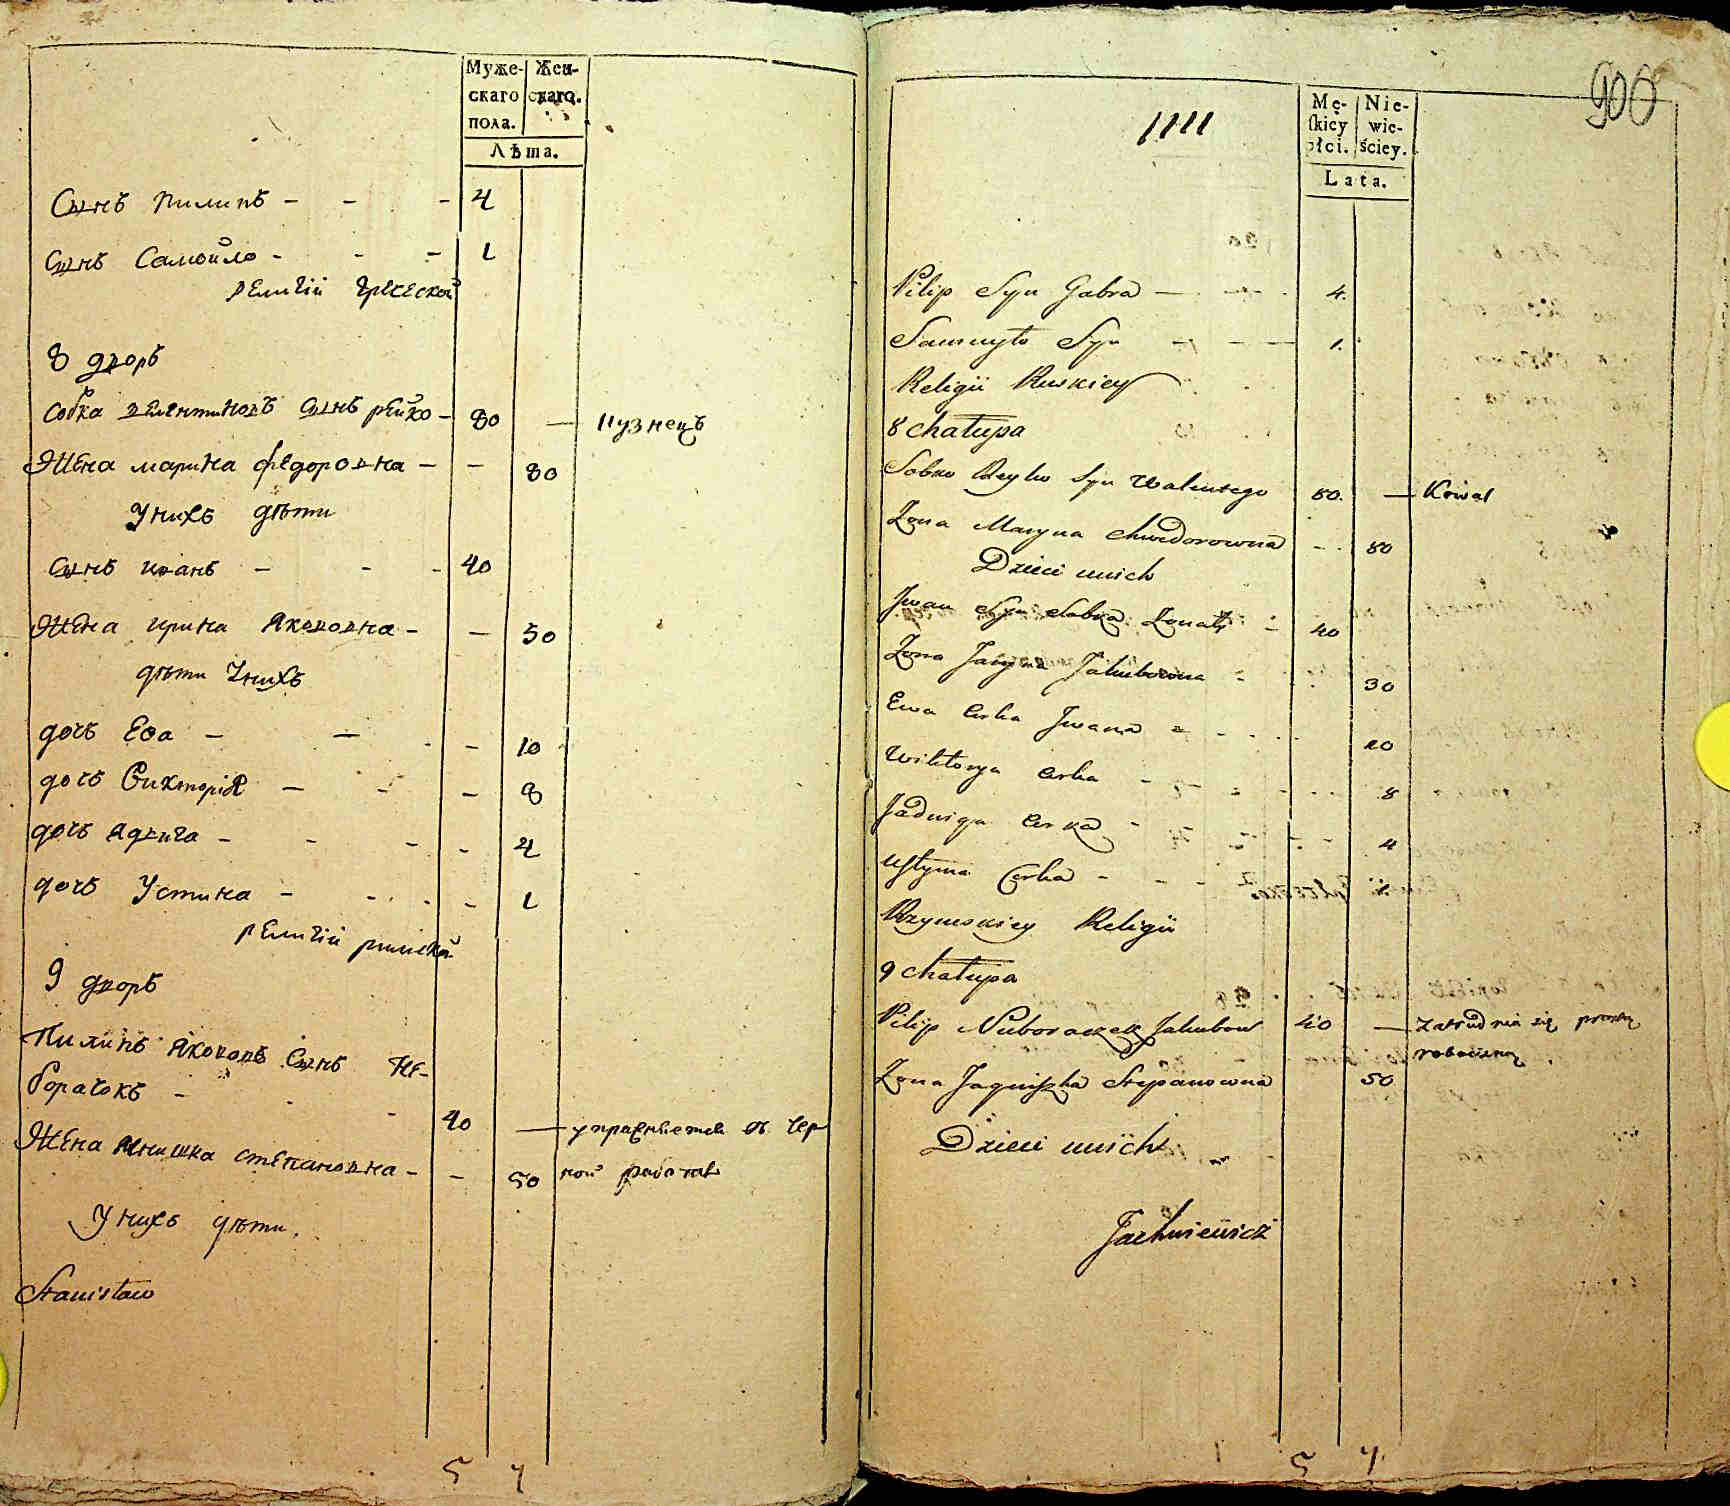 Муже-
скаго
пола.
Жен-
скаго.
Лѣта.
Сынъ пилипъ - - - 4
Сынъ Самойло - - - 1
религiи греческой
8 дворъ
Собка валентиновъ сынъ рейко - 80 — кузнецъ
Жена марина федоровна - - 80
У нихъ дѣти
Сынъ иванъ - - - 40
Жена ирина Якововна - - 30
дѣти У нихъ
дочь Ева - - - 10
дочь Викторiя - - - 8
дочь Адвига - - - - 4
дочь Устина - - - - 1
религiи римской
9 дворъ
Пилипъ Якововъ Сынъ не-
борачокъ - - 40 — упражняется въ чер
Жена Ягнишка степановна - - 50 ной работѣ
У нихъ дѣти.
Stanisław
5 7
900
1111
Mę-
ſkiey
płci.
Nie-
wie-
ściey.
Lata.
Pilip Syn Gabra — 4.
Samuyło Syn - - - 1.
Religii Ruskiey
8 chałupa
Sobko Reyko Syn Walentego 80. — Kowal
Zona Maryna Chwedorowna - - 80
Dzieci u nich
Jwan Syn Sobka Zonaty - 40
Zona Jaryna Jakubowna - 30
Ewa Corka Jwana - - 10
Wiktorya Corka - - - 8
Jadwiga Corka - - - 4
Uſtyma Corka - - - 1
Rzymskiey Religii
9 chałupa
Pilip Nuboraczek Jakubow 40 — zatrudnia się prostą
robocizną
Zona Jagniszka Stepanowna 50
Dzieci u nich
Jachniewicz
5 7